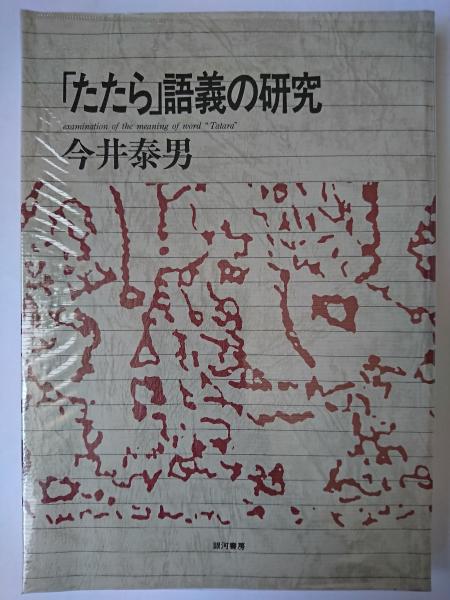 「たたら」語義の研究
examination of the meaning of word "Tatara"
今井泰男
銀河書房